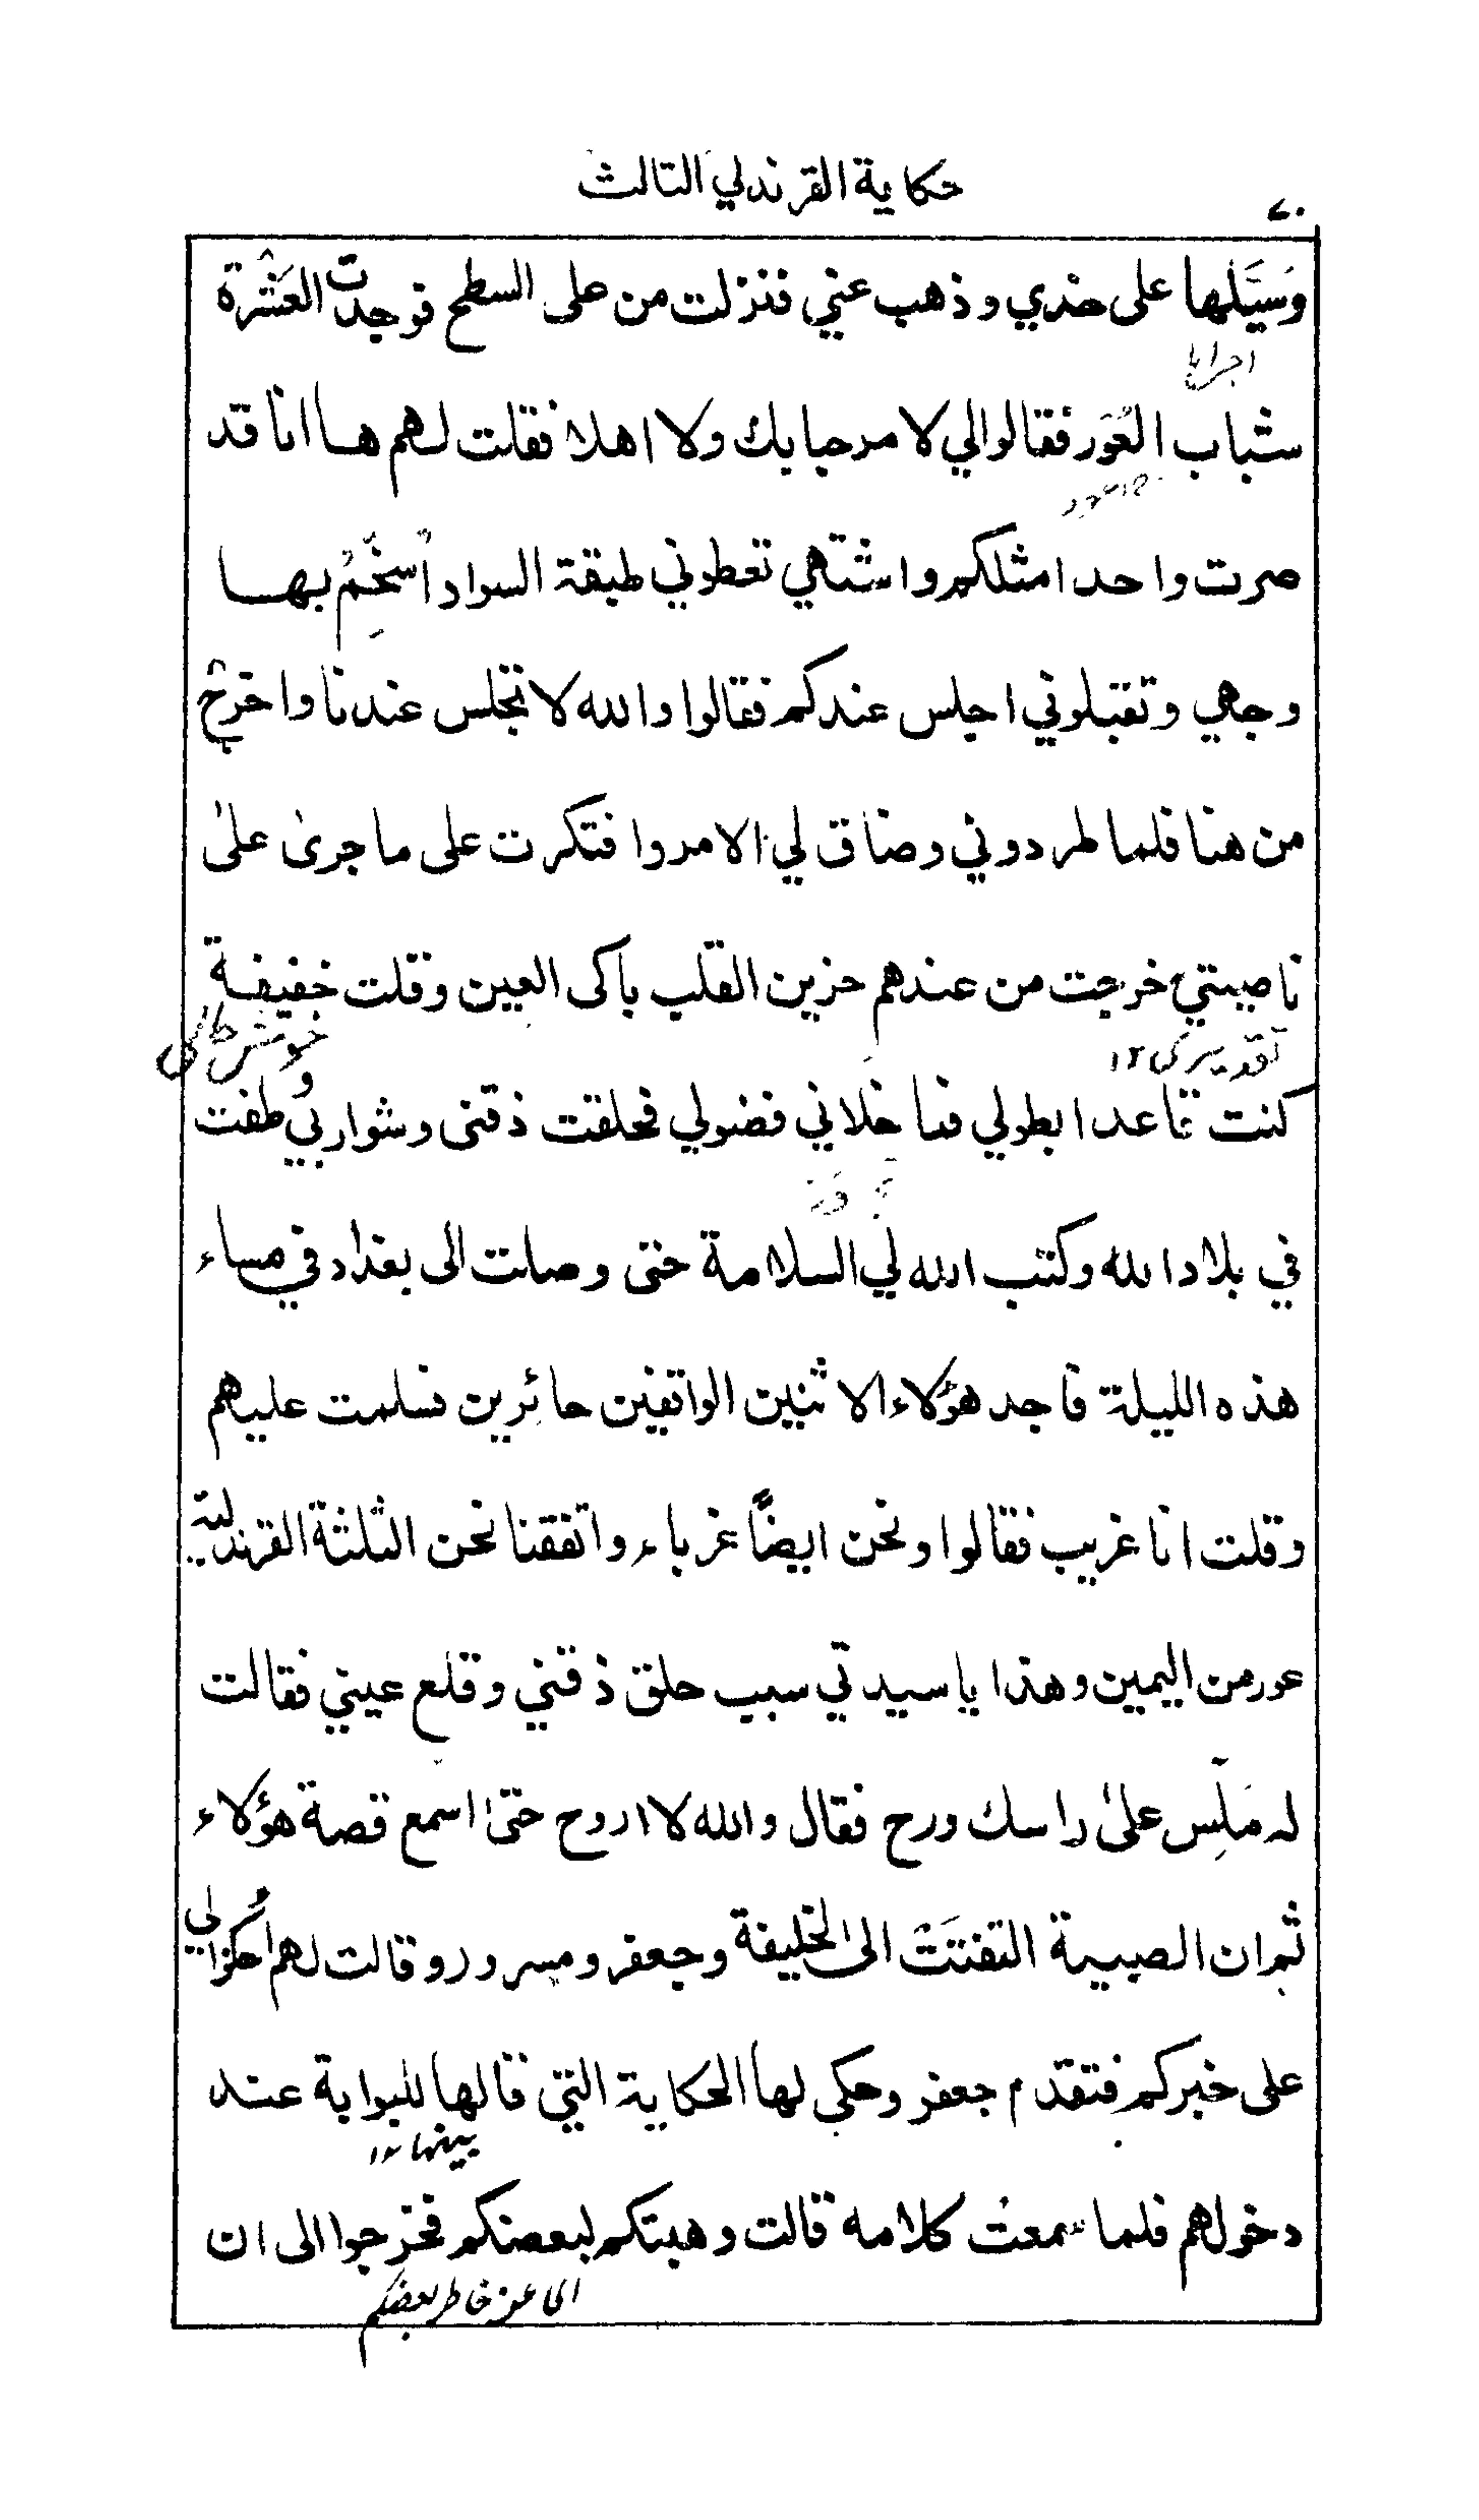 حكاية القرندلي الثالث
وَسَيَّلها على خدي وذهب عني فنزلت من على السطح فوجدت العَشْرة
شباب العُوْر فقالوا لي لا مرحبا بك ولا اهلا فقلت لهم ها انا قد
صرت واحدا مثلكم واشتهي تعطوني طبقة السواد اُسَخِّمُ بها
وجهي وتقبلوني اجلس عندكم فقالوا والله لا تجلس عندنا واخرج
من هنا فلما طردوني وضاق لي الامر وافتكرت على ما جرى على
ناصيتي خرجت من عندهم حزين القلب باكى العين وقلت خفيفة
كنت قاعدا بطولي فما خلاني فضولي فحلقت ذقنى وشواربي وطفت
في بلاد الله وكتب الله لي السلامة حتى وصلت الى بغداد في مساء
هذه الليلة فاجد هؤلاء الاثنين الواقفين حائرين فسلمت عليهم
وقلت انا غريب فقالوا ونحن ايضاً غرباء واتفقنا نحن الثلثة القرندلية
عور من اليمين وهذا يا سيدتي سبب حلق ذقني وقلع عيني فقالت
له مَلِّس على راسك ورح فقال والله لا اروح حتى اسمع قصة هؤلاء
ثم ان الصبية التفتَتْ الى الخليفة وجعفر ومسرور وقالت لهم احكوا لي
على خبركم فتقدم جعفر وحكى لها الحكاية التي قالها للبوابة عند
بينها ١٢
دخولهم فلما سمعت كلامه قالت وهبتكم لبعضكم فخرجوا الى ان